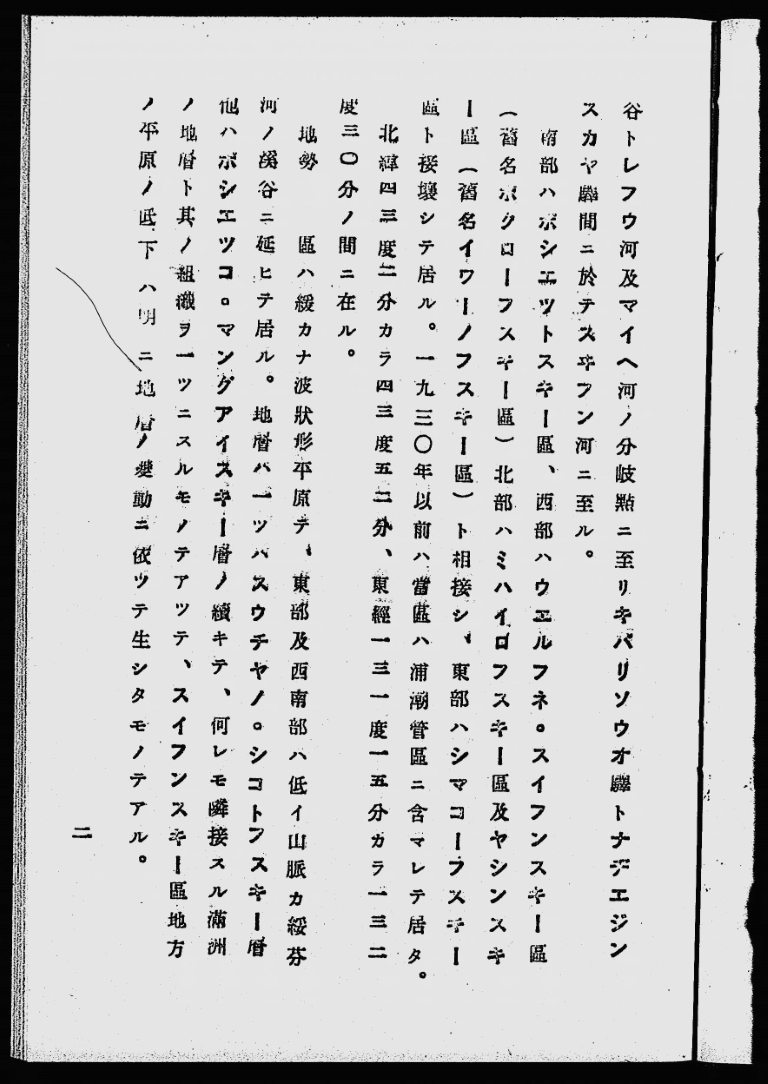 谷トレフウ河及マイヘ河ノ分岐點ニ至リキパリソウオ驛トナデエジン
スカヤ驛間ニ於テスヰフン河ニ至ル。
南部ハポシエツトスキー區、西部ハウエルフネ。スイフンスキー區
(舊名ポクローフスキー區)北部ハミハイロフスキー區及ヤシンスキ
ー區(舊名イワーノフスキー區)ト相接シ、東部ハシマコーフスキー
區ト接壤シテ居ル。一九三〇年以前ハ當區ハ浦潮管區ニ含マレテ居タ。
北緯四三度二分カラ四三度五二分、東經一三一度一五分カラ一三二
度三〇分ノ間ニ在ル。
地勢 區ハ緩カナ波狀形平原テ、東部及西南部ハ低イ山脈カ綏芬
河ノ溪谷ニ延ヒテ居ル。地層ハ一ツハスウチヤノ。シコトフスキー層
他ハポシエツコ。マングアイスキー層ノ續キテ、何レモ隣接スル滿洲
ノ地層ト其ノ組織ヲ一ツニスルモノテアツテ、スイフンスキー區地方
ノ平原ノ低下ハ明ニ地層ノ變動ニ依ツテ生シタモノテアル。
二